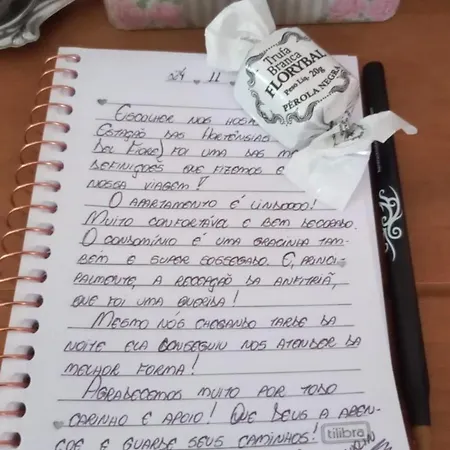 24 11
ESCOLHER NOS HOS
ESTAÇÃO DAS HORTÊNSIAS
DEL FIORE) FOI UMA DAS M
DEFINIÇÕES QUE FIZEMOS E
NOSSA VIAGEM!
O APARTAMENTO É LINDOOO!
MUITO CONFORTÁVEL E BEM DECORADO.
O CONDOMÍNIO É UMA GRACINHA TAM-
BÉM E SUPER SOSSEGADO. E, PRINCI-
PALMENTE, A RECEPÇÃO DA ANFITRIÃ,
QUE FOI UMA QUERIDA!
MESMO NÓS CHEGANDO TARDE DA
NOITE ELA CONSEGUIU NOS ATENDER DA
MELHOR FORMA!
AGRADECEMOS MUITO POR TODO
CARINHO E APOIO! QUE DEUS A ABEN-
ÇOE E GUARDE SEUS CAMINHOS!
tilibra
Trufa
Branca
FLORYBAL
Peso Liq. 20g
PÉROLA NEGRA